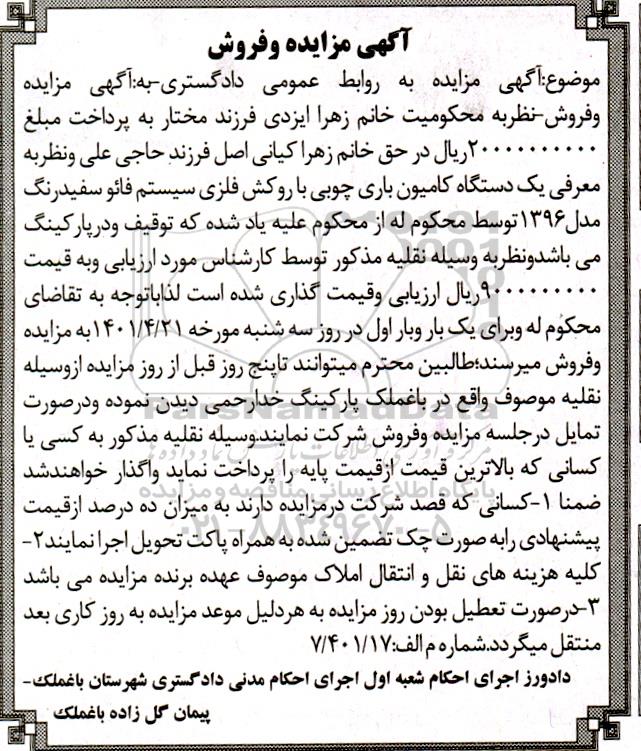 آگهی مزایده وفروش
موضوع:آگهی مزایده به روابط عمومی دادگستری-به:آگهی مزایده
وفروش-نظربه محکومیت خانم زهرا ایزدی فرزند مختار به پرداخت مبلغ
۲۰۰۰۰۰۰۰۰۰۰ریال در حق خانم زهرا کیانی اصل فرزند حاجی علی ونظربه
معرفی یک دستگاه کامیون باری چوبی با روکش فلزی سیستم فائو سفیدرنگ
مدل۱۳۹۶توسط محکوم له از محکوم علیه یاد شده که توقیف ودرپارکینگ
می باشدونظربه وسیله نقلیه مذکور توسط کارشناس مورد ارزیابی وبه قیمت
۹۰۰۰۰۰۰۰۰۰۰ریال ارزیابی وقیمت گذاری شده است لذاباتوجه به تقاضای
محکوم له وبرای یک بار وبار اول در روز سه شنبه مورخه ۱۴۰۱/۴/۲۱به مزایده
وفروش میرسند؛طالبین محترم میتوانند تاپنج روز قبل از روز مزایده ازوسیله
نقلیه موصوف واقع در باغملک پارکینگ خدارحمی دیدن نموده ودرصورت
تمایل درجلسه مزایده وفروش شرکت نمایند.وسیله نقلیه مذکور به کسی یا
کسانی که بالاترین قیمت ازقیمت پایه را پرداخت نماید واگذار خواهندشد
ضمنا ۱-کسانی که قصد شرکت درمزایده دارند به میزان ده درصد ازقیمت
پیشنهادی رابه صورت چک تضمین شده به همراه پاکت تحویل اجرا نمایند۲-
کلیه هزینه های نقل و انتقال املاک موصوف عهده برنده مزایده می باشد
۳-درصورت تعطیل بودن روز مزایده به هردلیل موعد مزایده به روز کاری بعد
منتقل میگردد.شماره م الف:۷/۴۰۱/۱۷
دادورز اجرای احکام شعبه اول اجرای احکام مدنی دادگستری شهرستان باغملک-
پیمان گل زاده باغملک
ParsNamadData
پایگاه اطلاع رسانی مناقصه و مزایده
۰۲۱-۸۸۳۴۹۶۷۰-۵